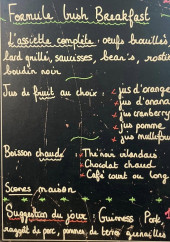 Formule Irish Breakfast
L'assiette complète : oeufs brouillés,
lard grillé, saucisses, bean's, rostis
boudin noir
Jus de fruit au choix : jus d'orange
jus d'anana
jus cranberry
jus pomme
jus multifruit
Boisson chaude Thé noir irlandais
Chocolat chaud
Café court ou long
Scones maison
Suggestion du jour : Guinness Pork,
ragoût de porc, pommes de terre grenailles